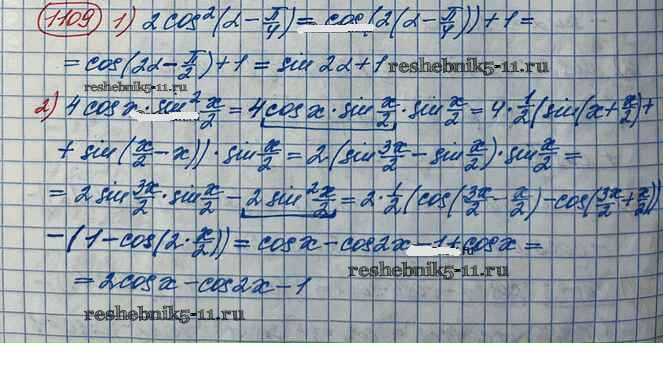 1109 1) 2cos²(α - π/4) = cos(2(α - π/4)) + 1 =
= cos(2α - π/2) + 1 = sin 2α + 1 reshebnik5-11.ru
reshebnik5-11.ru
2) 4 cos x · sin² x/2 = 4 cos x · sin x/2 · sin x/2 = 4 · 1/2 (sin(x + x/2) +
+ sin(x/2 - x)) · sin x/2 = 2 · (sin 3x/2 - sin x/2) · sin x/2 =
= 2 sin 3x/2 · sin x/2 - 2 sin² x/2 = 2 · 1/2 (cos(3x/2 - x/2) - cos(3x/2 + x/2))
- (1 - cos(2 · x/2)) = cos x - cos 2x - 1 + cos x =
reshebnik5-11.ru
= 2 cos x - cos 2x - 1
reshebnik5-11.ru